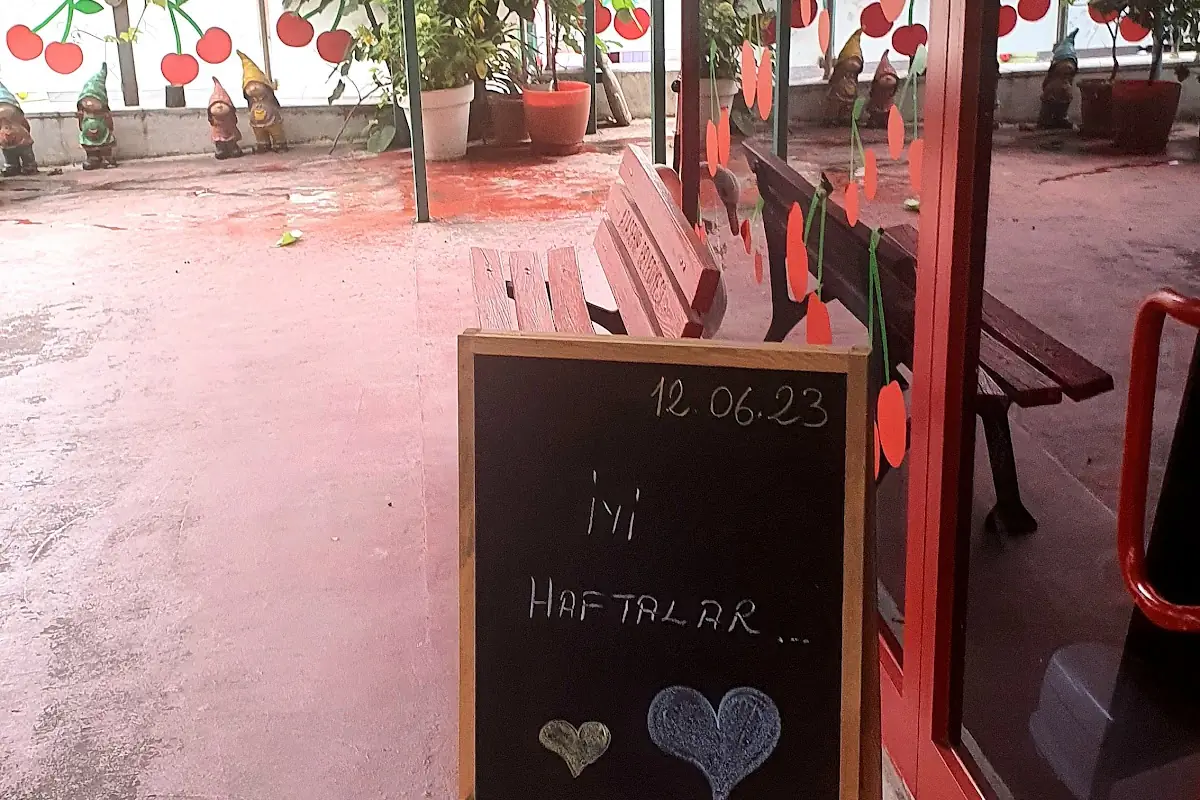 12.06.23
İYİ
HAFTALAR...